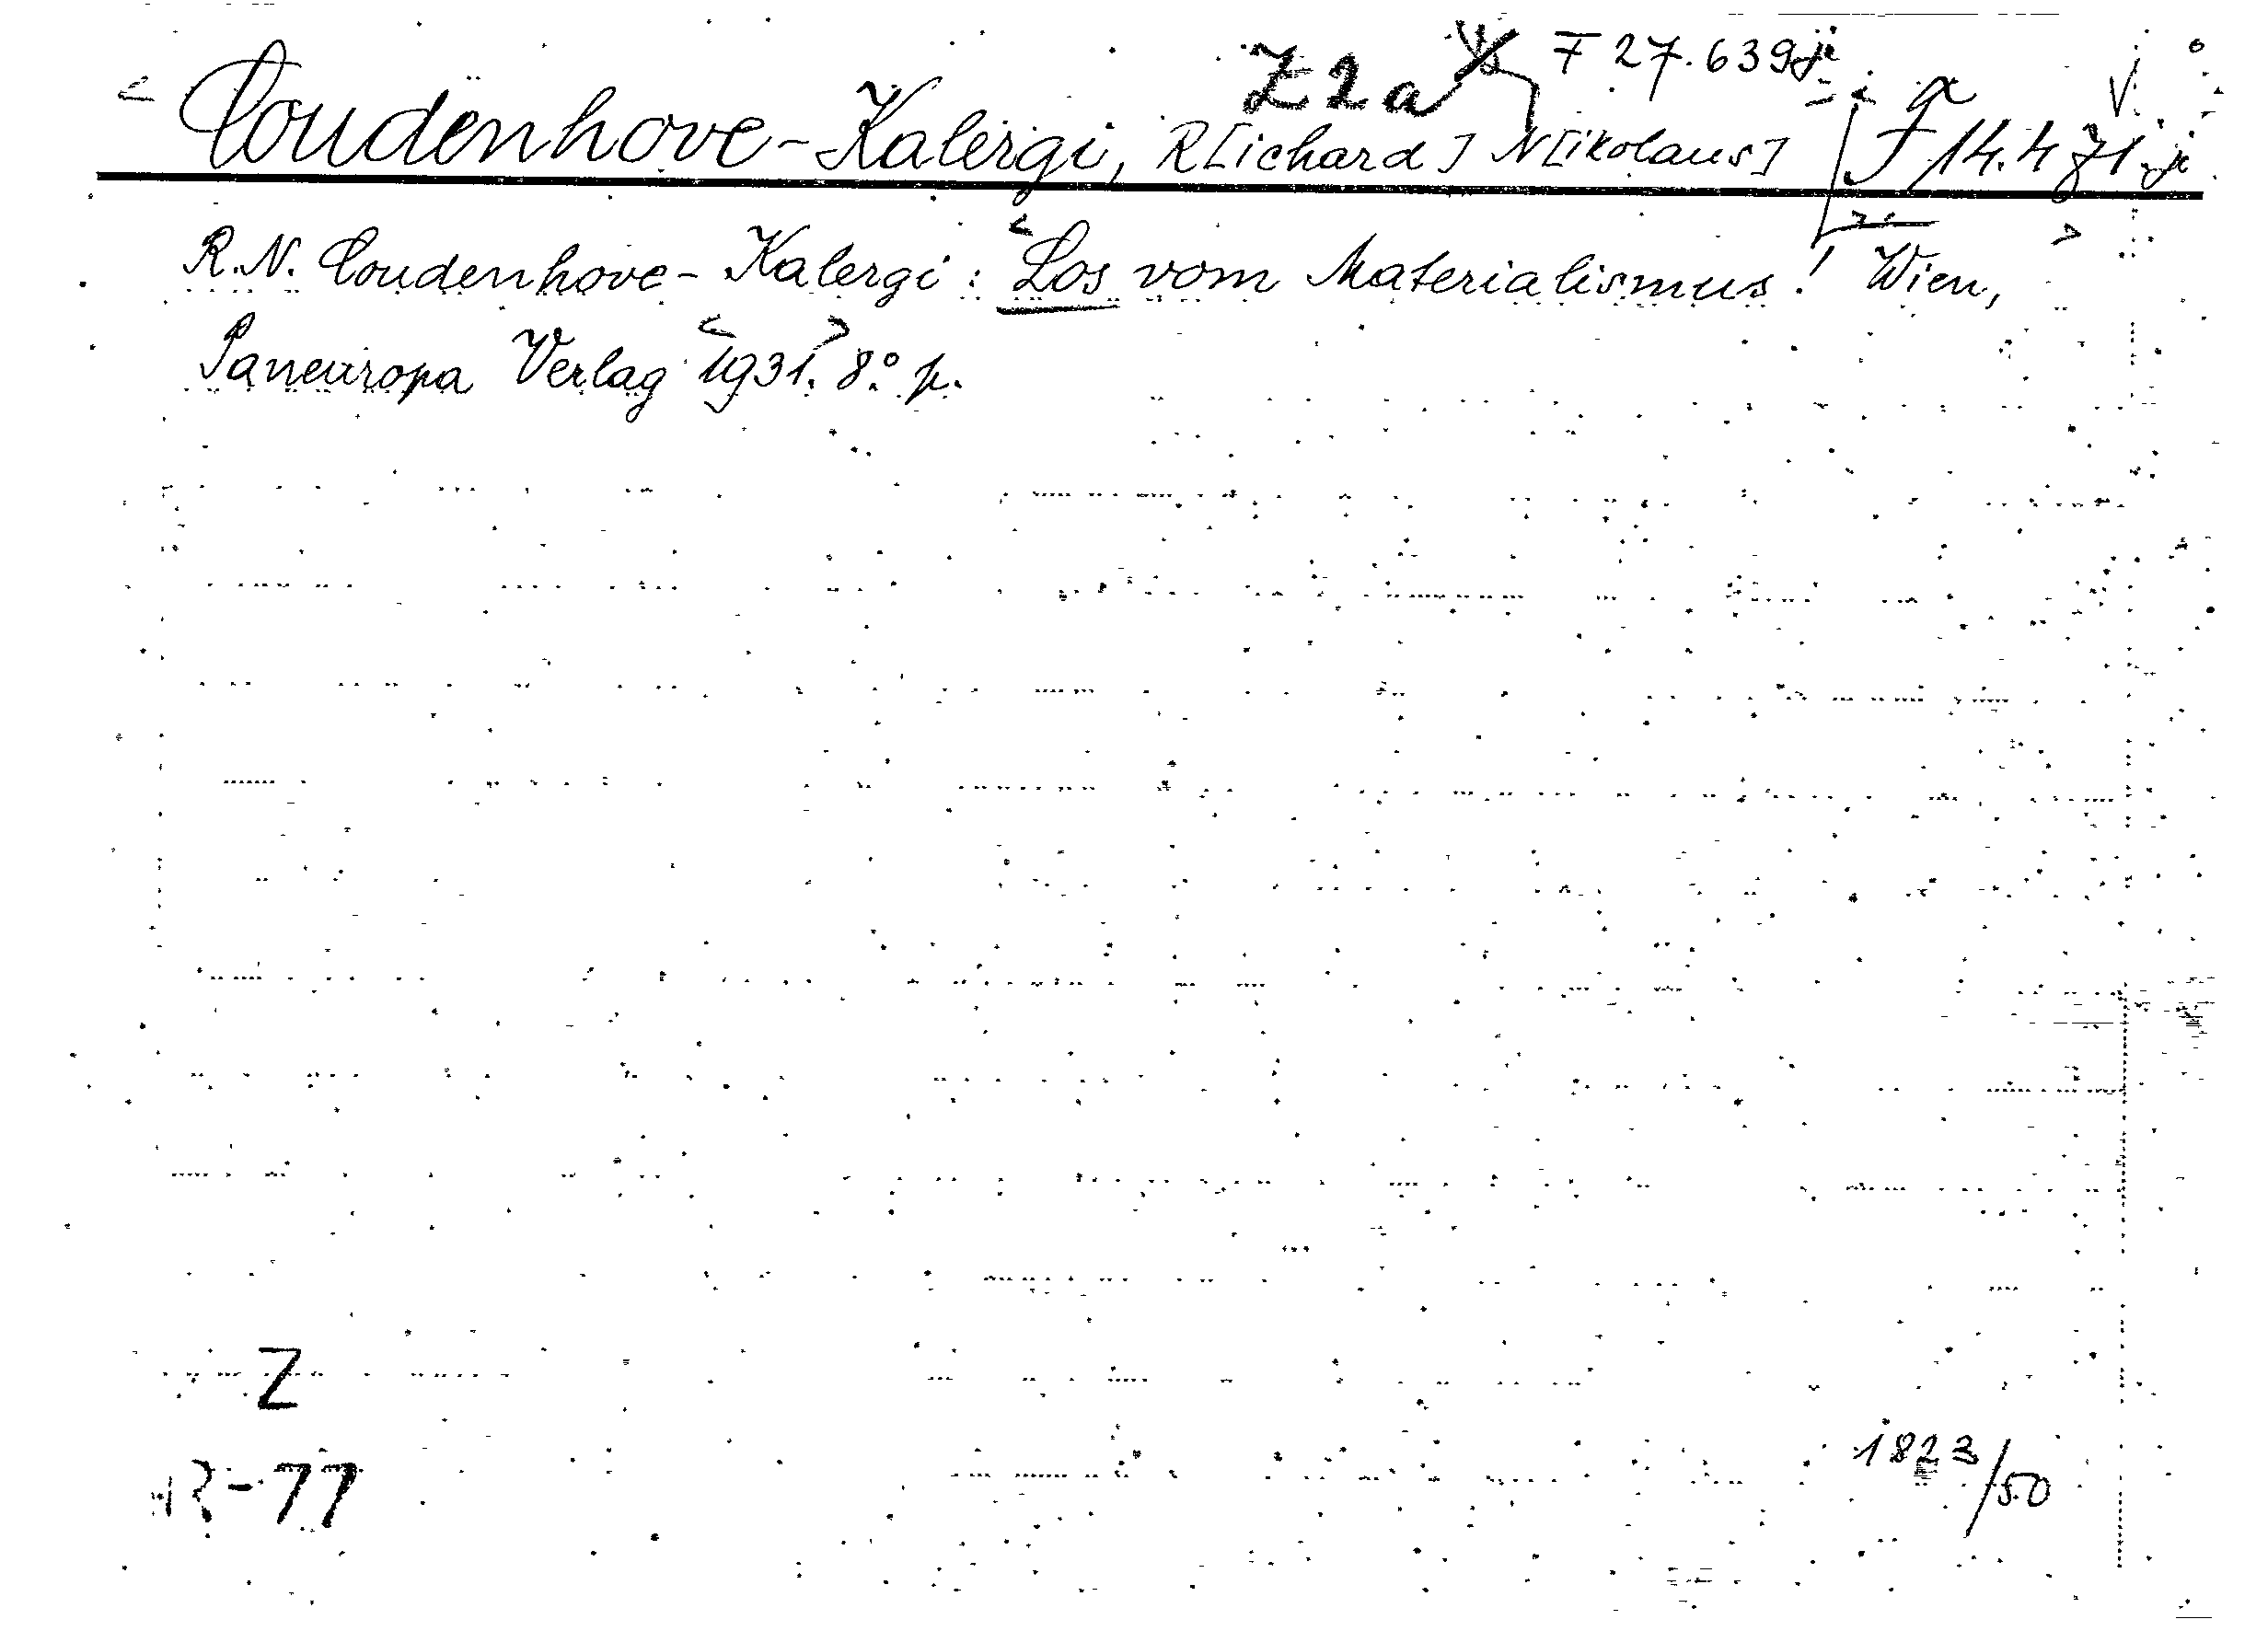 Z2a F 27.639 ji
Coudenhove-Kalergi, R[ichard] N[ikolaus] F 14.471 ji
R.N. Coudenhove-Kalergi: Los vom Materialismus! Wien,
Paneuropa Verlag 1931. 8° p.
Z
-77
1823/50